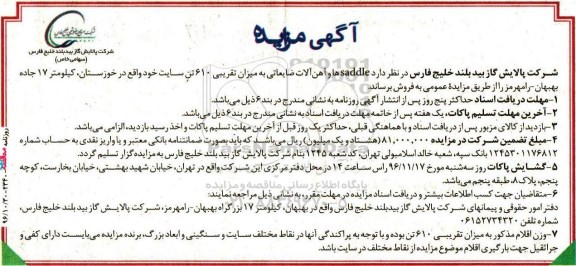 آگهی مزایده
شرکت پالایش گاز بیدبلند خلیج فارس
(سهامی خاص)
شرکت پالایش گاز بیدبلند خلیج فارس در نظر دارد saddle ها و آهن آلات ضایعاتی به میزان تقریبی ۶۱۰ تن سایت خود واقع در خوزستان، کیلومتر ۱۷ جاده
بهبهان-رامهرمز را از طریق مزایدهٔ عمومی به فروش برساند.
۱-مهلت دریافت اسناد حداکثر پنج روز پس از انتشار آگهی روزنامه به نشانی مندرج در بند ۶ ذیل می‌باشد.
۲-آخرین مهلت تسلیم پاکات، یک هفته پس از خاتمه مهلت دریافت اسناد به نشانی مندرج در بند ۶ ذیل می‌باشد.
۳-بازدید از کالای مزبور پس از دریافت اسناد و با هماهنگی قبلی، حداکثر یک روز قبل از آخرین مهلت تسلیم پاکات و اخذ رسید بازدید، الزامی می‌باشد.
۴-مبلغ تضمین شرکت در مزایده ۸۱,۰۰۰,۰۰۰ (هشتاد و یک میلیون) ریال می‌باشد که باید بصورت ضمانتنامه بانکی معتبر و یا واریز نقدی به حساب شماره
۱۲۴۵۳۰۱۱۷۶۸۱۲ بانک سپه، شعبه خالد اسلامبولی تهران، کد شعبه ۱۲۴۵ بنام شرکت پالایش گاز بیدبلند خلیج فارس به مزایده‌گزار تسلیم گردد.
۵-گشایش پاکات روز سه‌شنبه مورخ ۹۶/۱۱/۱۷ راس ساعت ۱۴ در محل دفتر مرکزی این شرکت واقع در تهران، خیابان شهید بهشتی، خیابان بخارست، کوچه
پنجم، پلاک ۸، طبقه پنجم می‌باشد.
۶-متقاضیان جهت کسب اطلاعات بیشتر و دریافت اسناد مزایده در مهلت مقرر، به نشانی ذیل مراجعه نمایند:
دفتر امور حقوقی و پیمانهای شرکت پالایش گاز بیدبلند خلیج فارس واقع در بهبهان، کیلومتر ۱۷ بزرگراه بهبهان-رامهرمز، شرکت پالایش گاز بیدبلند خلیج فارس،
شماره تماس ۰۶۱۵۲۷۳۴۳۲۰
۷-وزن اقلام مذکور به میزان تقریبی ۶۱۰ تن بوده و با توجه به پراکندگی آنها در نقاط مختلف سایت و سنگینی و ابعاد بزرگ، برنده مزایده می‌بایست دارای کفی و
جراثقیل جهت بارگیری اقلام موضوع مزایده از نقاط مختلف در سایت باشد.